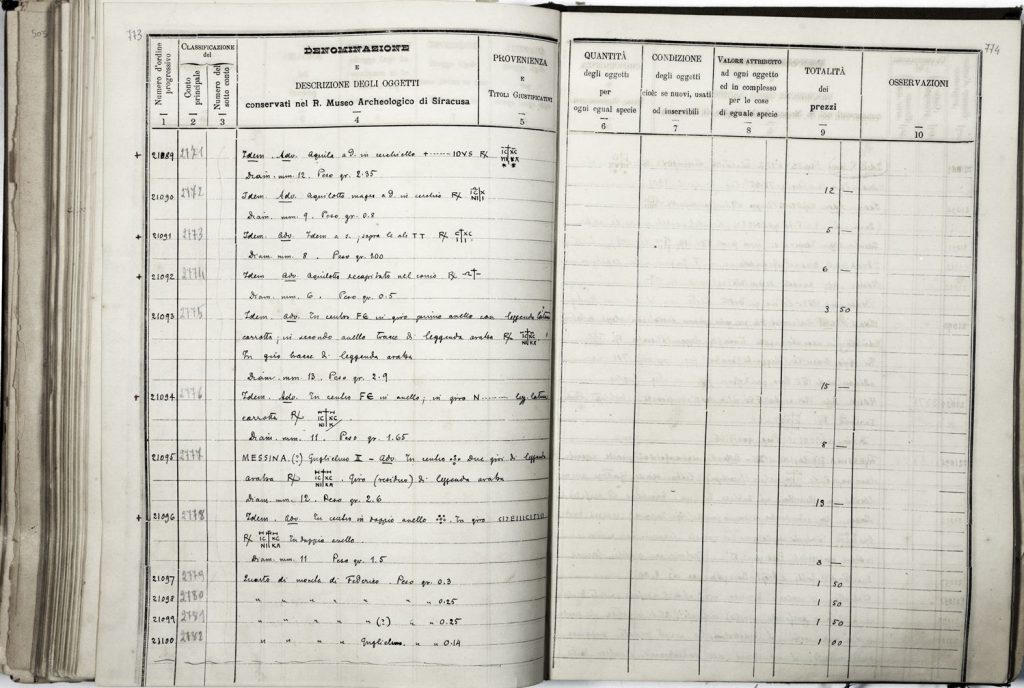 773
CLASSIFICAZIONE
del
Numero d'ordine progressivo
Conto principale
Numero del sotto conto
DENOMINAZIONE
E
DESCRIZIONE DEGLI OGGETTI
conservati nel R. Museo Archeologico di Siracusa
PROVENIENZA
E
TITOLI GIUSTIFICATIVI
1 2 3 4 5
+ 21089 2771 Idem. Adv. Aquila a D. in cerchiello +······IDVS R/ IC XC
Diam. mm. 12. Peso gr. 2.35
21090 2772 Idem. Adv. Aquilotto magro a D. in cerchio R/
Diam. mm. 9. Peso gr. 0.8
+ 21091 2773 Idem. Adv. Idem a s.; sopra le ali TT R/
Diam. mm. 8. Peso gr.
+ 21092 2774 Idem Adv. Aquilotto in conio R/
Diam. mm. 6. Peso gr. 0.5
21093 2775 Idem. Adv. In centro FE in giro primo anello con leggenda latina
corrotta; in secondo anello tracce di leggenda araba R/ IC XC NI KA
In giro tracce di leggenda araba
Diam. mm. 13 Peso gr. 2.9
+ 21094 2776 Idem. Adv. In centro FE in anello; in giro N········ legg. latina
corrotta R/ IC XC NI K
Diam. mm. 11. Peso gr. 1.65
21095 2777 MESSINA. (?) Guglielmo I - Adv. In centro Due giri di leggenda
araba R/ IC XC NI KA. Giro (residuo) di leggenda araba
Diam. mm. 12. Peso gr. 2.6
+ 21096 2778 Idem. Adv. In centro in doppio anello. In giro
R/ IC XC NI KA In doppio anello.
Diam. mm. 11 Peso gr. 1.5
21097 2779 Quarto di moneta di Federico Peso gr. 0.3
21098 2780 " " " " " " " 0.25
21099 2781 " " " " " (?) " " 0.25
21100 2782 " " " " Guglielmo. " " 0.14
774
QUANTITÀ
degli oggetti
per
ogni egual specie
CONDIZIONE
degli oggetti
cioè: se nuovi, usati
od inservibili
VALORE ATTRIBUITO
ad ogni oggetto
ed in complesso
per le cose
di eguale specie
TOTALITÀ
dei
prezzi
OSSERVAZIONI
6 7 8 9 10
12 —
5 —
6 —
3 50
15 —
8 —
13 —
8 —
1 50
1 50
1 50
1 00